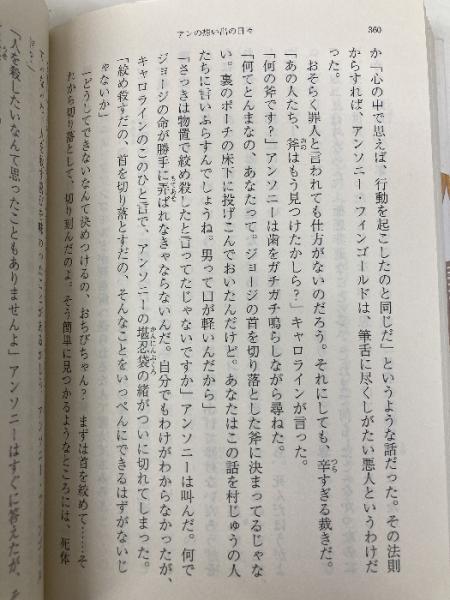 アンの想い出の日々
360
か「心の中で思えば、行動を起こしたのと同じだ」というような話だった。その法則
からすれば、アンソニー・フィンゴールドは、筆舌に尽くしがたい悪人というわけだ
った。
おそらく罪人と言われても仕方がないのだろう。それにしても、辛すぎる裁きだ。
「あの人たち、斧はもう見つけたかしら？」キャロラインが言った。
「何の斧です？」アンソニーは歯をガチガチ鳴らしながら尋ねた。
「何てとんまなの、あなたって。ジョージの首を切り落とした斧に決まってるじゃな
い。裏のポーチの床下に投げこんでおいたんだけど。あなたはこの話を村じゅうの人
たちに言いふらすんでしょうね。男って口が軽いんだから」
「さっきは物置で絞め殺したと言ってたじゃないですか」アンソニーは叫んだ。何で
ジョージの命が勝手に弄ばれなきゃならないんだ。自分でもわけがわからなかったが、
キャロラインのこのひと言で、アンソニーの堪忍袋の緒がついに切れてしまった。
「絞め殺すだの、首を切り落とすだの、そんなことをいっぺんにできるはずがないじ
ゃないか」
「どうしてできないなんて決めつけるの、おちびちゃん？　まずは首を絞めて……そ
れから切り落として、切り刻んだのよ。そう簡単に見つかるようなところには、死体
「人を殺したいなんて思ったこともありませんよ」アンソニーはすぐに答えたが、そ